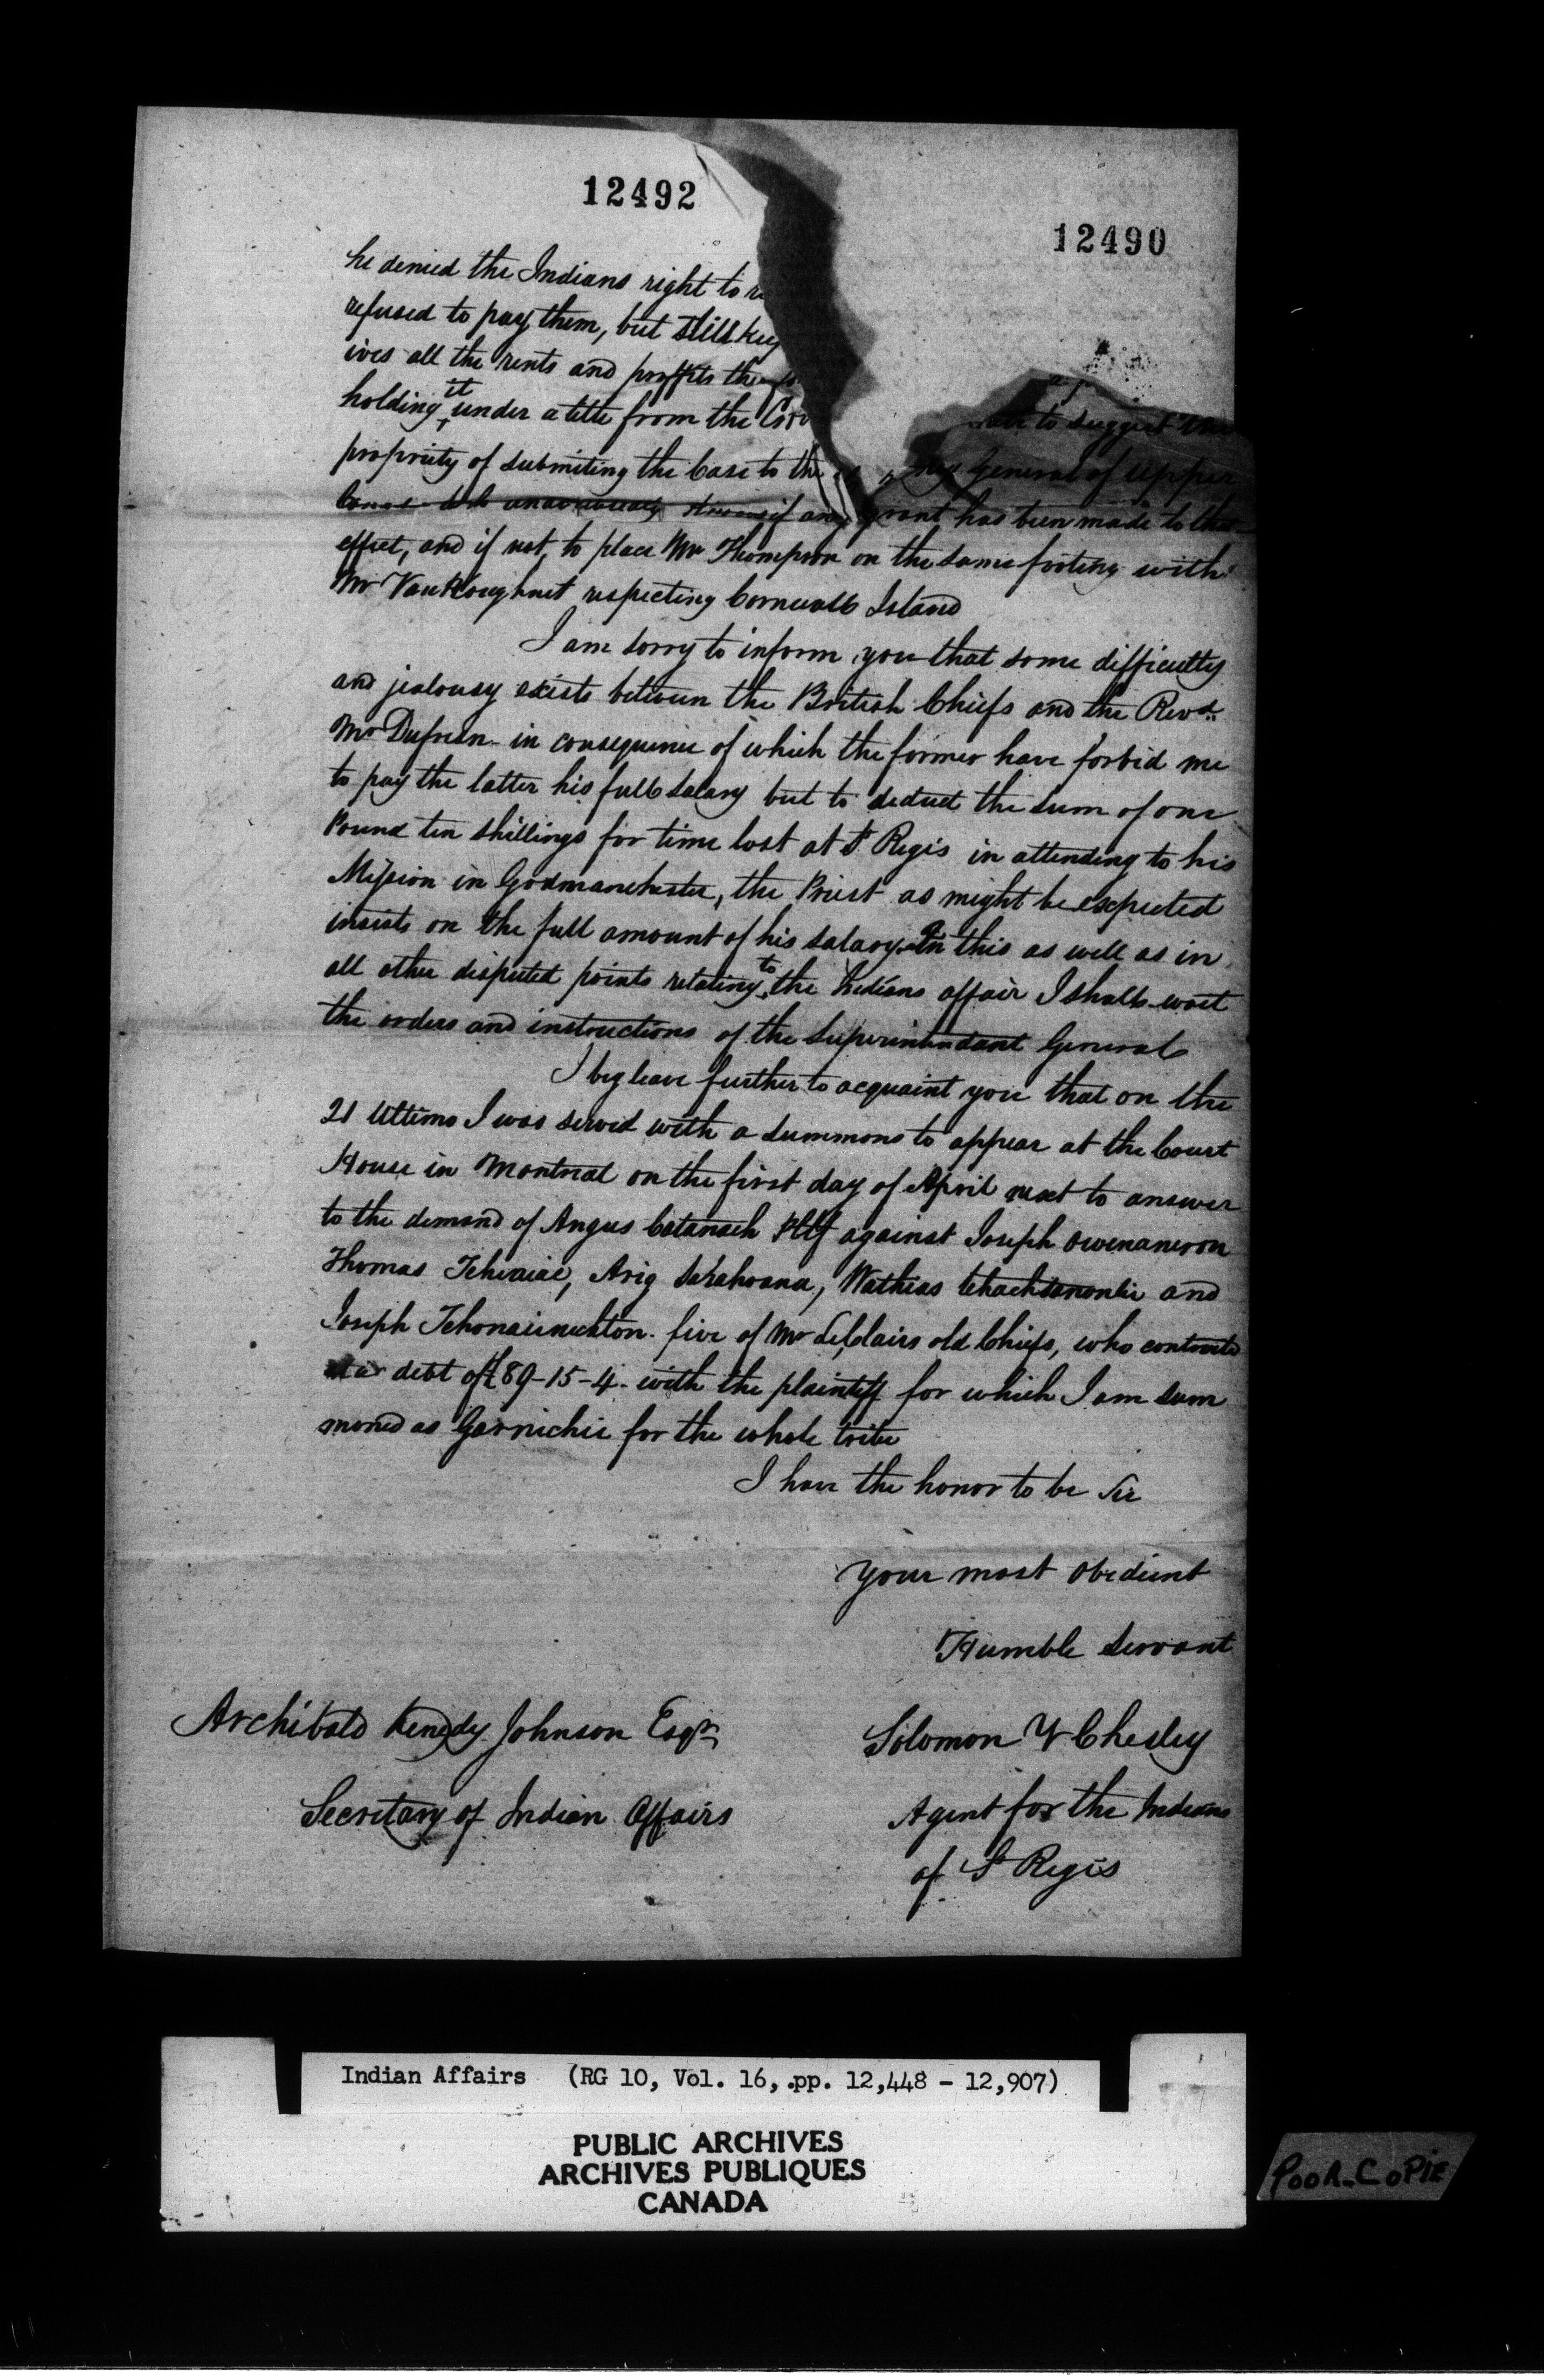 12492
12490
he denied the Indians right to
refused to pay them, but still
ives all the rents and proffits
holding it under a title from the to suggest the
propriety of submiting the Case to the General of Upper
if any grant has been made to that
effect, and if not, to place Mr Thompson on the same footing with
Mr VanKoughnet respecting Cornwall Island
I am sorry to inform you that some difficulty
and jealousy exists between the British Chiefs and the Revd.
Mr Dufresn in consequence of which the former have forbid me
to pay the latter his full salary but to deduct the sum of one
Pound ten shillings for time lost at St Regis in attending to his
Mission in Godmanchester, the Priest as might be expected
insists on the full amount of his salary. In this as well as in
all other disputed points relating to the Indians affair I shall wait
the orders and instructions of the Superintendant General
I beg leave further to acquaint you that on the
21 Ultimo I was served with a summons to appear at the Court
House in Montreal on the first day of April next to answer
to the demand of Angus Catanach Pltf against Joseph
Thomas and
Joseph five of Mr old Chiefs, who
a debt of £89-15-4- with the plaintiff for which I am sum
moned as Garnichie for the whole tribe
I have the honor to be Sir
your most Obedient
Humble Servant
Archibald Kenedy Johnson Esqr
Solomon Y Chesley
Secretary of Indian Affairs
Agent for the Indians
of St Regis
Indian Affairs (RG 10, Vol. 16, pp. 12,448 - 12,907)
PUBLIC ARCHIVES
ARCHIVES PUBLIQUES
CANADA
POOR COPIE